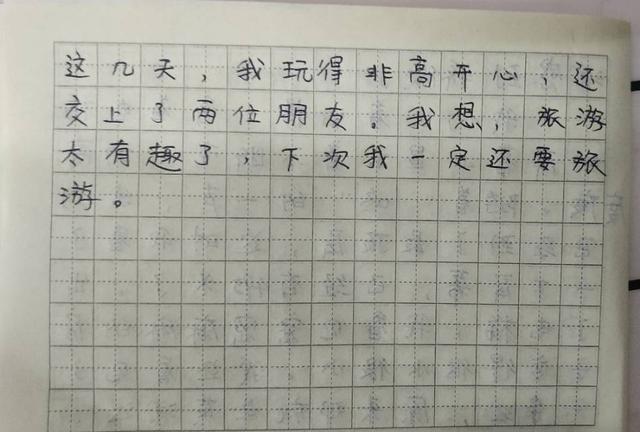 这几天，我玩得非高开心，还
交上了两位朋友。我想，旅游
太有趣了，下次我一定还要旅
游。